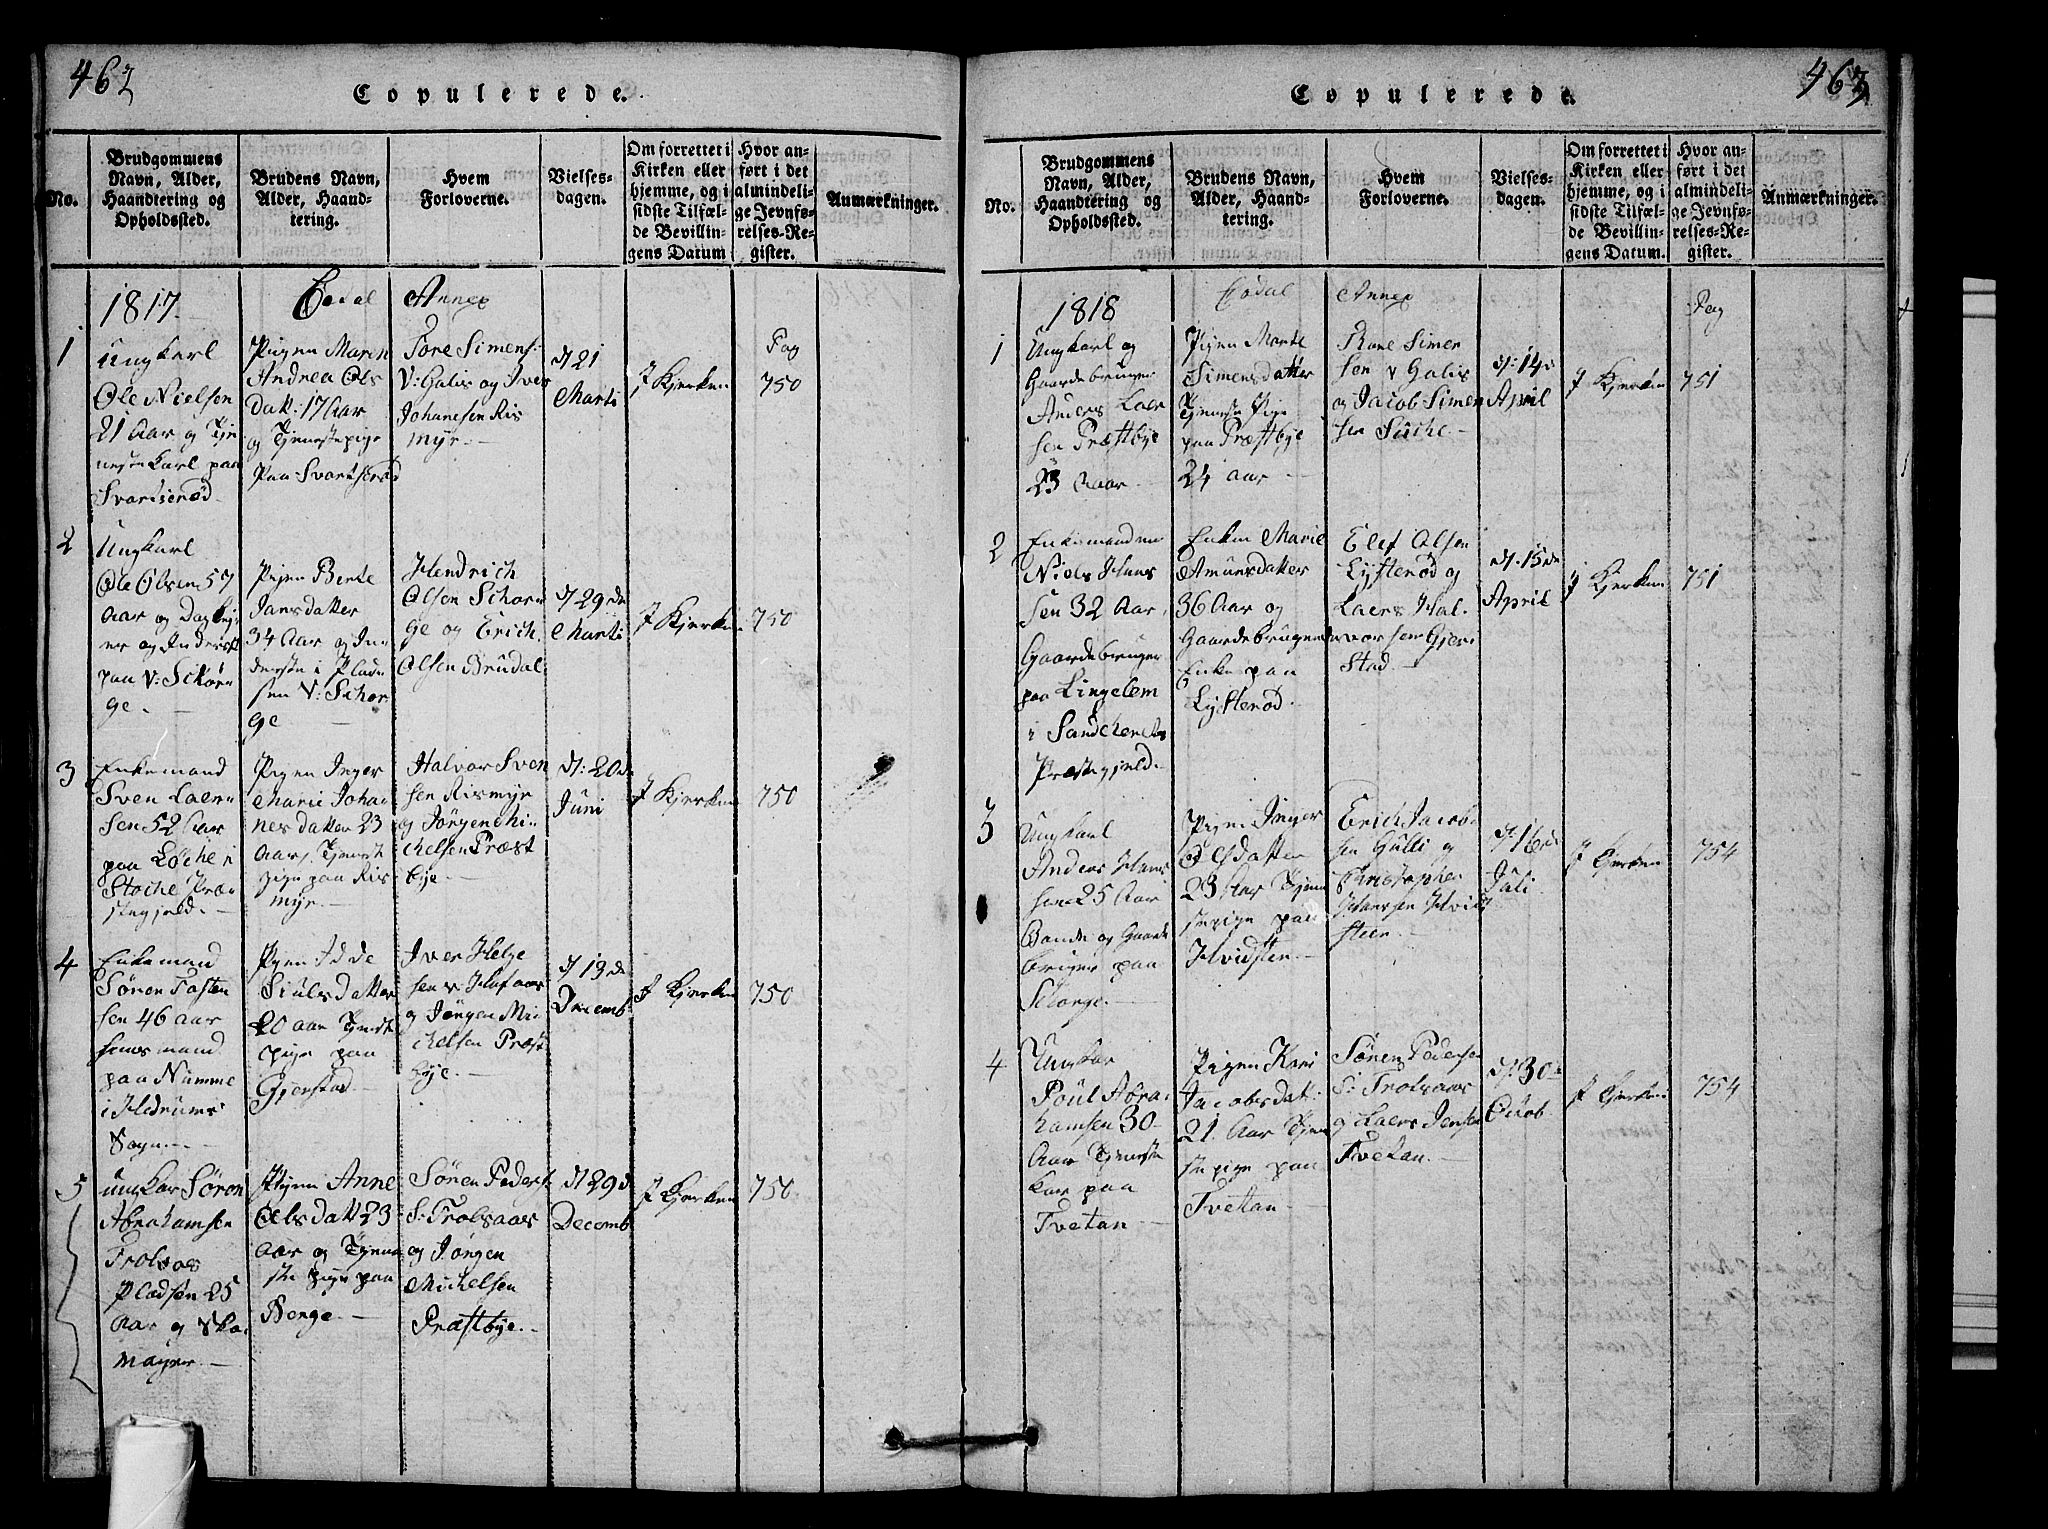 462
Copulerede.
No.
Brudgommens
Navn, Alder,
Haandtering og
Opholdssted.
Brudens Navn,
Alder, Haand-
tering.
Hvem
Forloverne.
Vielses-
dagen.
Om forrettet i
Kirken eller
hjemme, og i
sidste Tilfæl-
de Bevillin-
gens Datum
Hvor an-
ført i det
almindeli-
ge Jevnfø-
relses-Re-
gister.
Anmærkninger.
1817.
Annex
1
Ungkarl
Ole Nielsen
21 Aar og Tje
nestekarl paa
Svartserød
Pigen Maren
Andrea Ols
Dat: 17 Aar
og Tjenestepige
paa Svartserød
Tore Simens:
V: Galis og Iver
Johanesen Ris
myr.
d. 21
Marti
I Kjerken
Pag
750
2
Ungkarl
Ole Olsen 57
Aar og
og Inderst
paa V: Skør
ge.
Pigen Bente
Jansdatter
34 Aar og In
derste i Plad
sen V: Schor
ge
Hendrich
Olsen Schor
ge og Erich
Olsen Brudal
d. 29de
Marti
I Kjerken
750
3
Enkemand
Sven Laer
sen 52 Aar
paa Løche i
Stoche Præ
stegjeld.
Pigen Inger
Marie Joha
nesdatter 23
Aar, Tjenest
pige paa Ris
myr.
Halvor Sven
sen Rismyr
og Jørgen Mi
chelsen Præst
bye.
d: 20de
Juni
I Kjerken
750
4
Enkemand
Søren Tosten
sen 46 Aar
paa Numme
i Hedrums
Sogn.
Pigen Idde
Siulsdatter
20 Aar Tjenest
pige paa
Gjerstad
Iver Helge
sen
og Jørgen Mi
chelsen Præst
bye.
d 19de
Decemb
I Kjerken
750
5
Ungkar Søren
Abrahamsen
Trolsaas
Pladsen 25
Aar og Sko
mager.
Pigen Anne
Olsdatt 23
Aar og Tjene
ste pige paa
Berge.
Søren Peders
S: Trolsaas
og Jørgen
Michelsen
Præstbye.
d 29de
Decemb
I Kjerken
750
463
Copulerede.
No.
Brudgommens
Navn, Alder,
Haandtering og
Opholdssted.
Brudens Navn,
Alder, Haand-
tering.
Hvem
Forloverne.
Vielses-
dagen.
Om forrettet i
Kirken eller
hjemme, og i
sidste Tilfæl-
de Bevillin-
gens Datum.
Hvor an-
ført i det
almindeli-
ge Jevnfø-
relses-Re-
gister.
Anmærkninger.
1818
Annex
Pag
1
Ungkarl og
Gaardebruger
Anders Laer
sen Præstbye
23 Aar
Pigen Marte
Simensdatter
Tjeneste Pige
paa Præstbye
24 aar
Simen
sen V Galis
og Jacob Simen
sen
d: 14de
April
I Kjerken
751
2
Enkemanden
Niels Hans
sen 32 Aar,
Gaardebruger
paa Lingelem
i Sandeherets
Præstegjeld.
Enken Marie
Amunsdatter
36 Aar og
Gaardebrugen
Enke paa
Lysterød.
Elef Olsen
Lysterød og
Laers Hal
vorsen Gjer
stad.
d. 15de
April
I Kjerken
751
3
Ungkarl
Anders Hans
sen 25 Aar
Bonde og Gaarde
bruger paa
Schorge.
Pigen Inger
Olsdatter
23 Aar Tjene
stepige paa
Hvidsten.
Erich Jacob
sen Gulli og
Christopher
Hanssen Hvid
steen.
d: 16de
Juli
I Kjerken
754
4
Ungkar
Poul Abra
hamsen 30
Aar Tjeneste
kar paa
Tvetan
Pigen Kari
Jacobsdat:
21 Aar Tjene
stepige paa
Tvetan
Søren Pedersen
S: Trolsaas
og Laers Jensen
Tvetan.
d. 30
Octob
I Kjerken
754